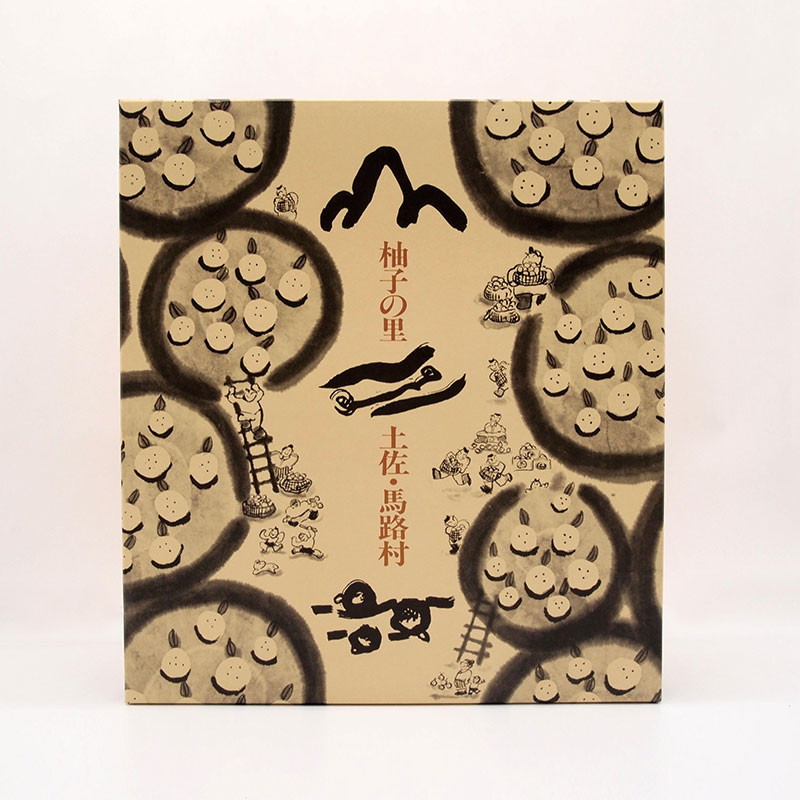 柚子の里
土佐・馬路村